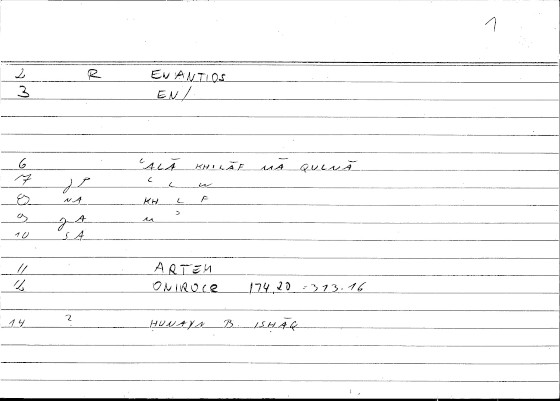 1
2 R ENANTIOS
3 EN/
6 ʿALĀ KHILĀF MĀ QULNĀ
7 gP ʿ L W
8 NA KH L F
9 gA M ʾ
10 SA
11 ARTEM
12 ONIROCR 174.20 = 313.16
14 2 HUNAYN B. ISHĀQ